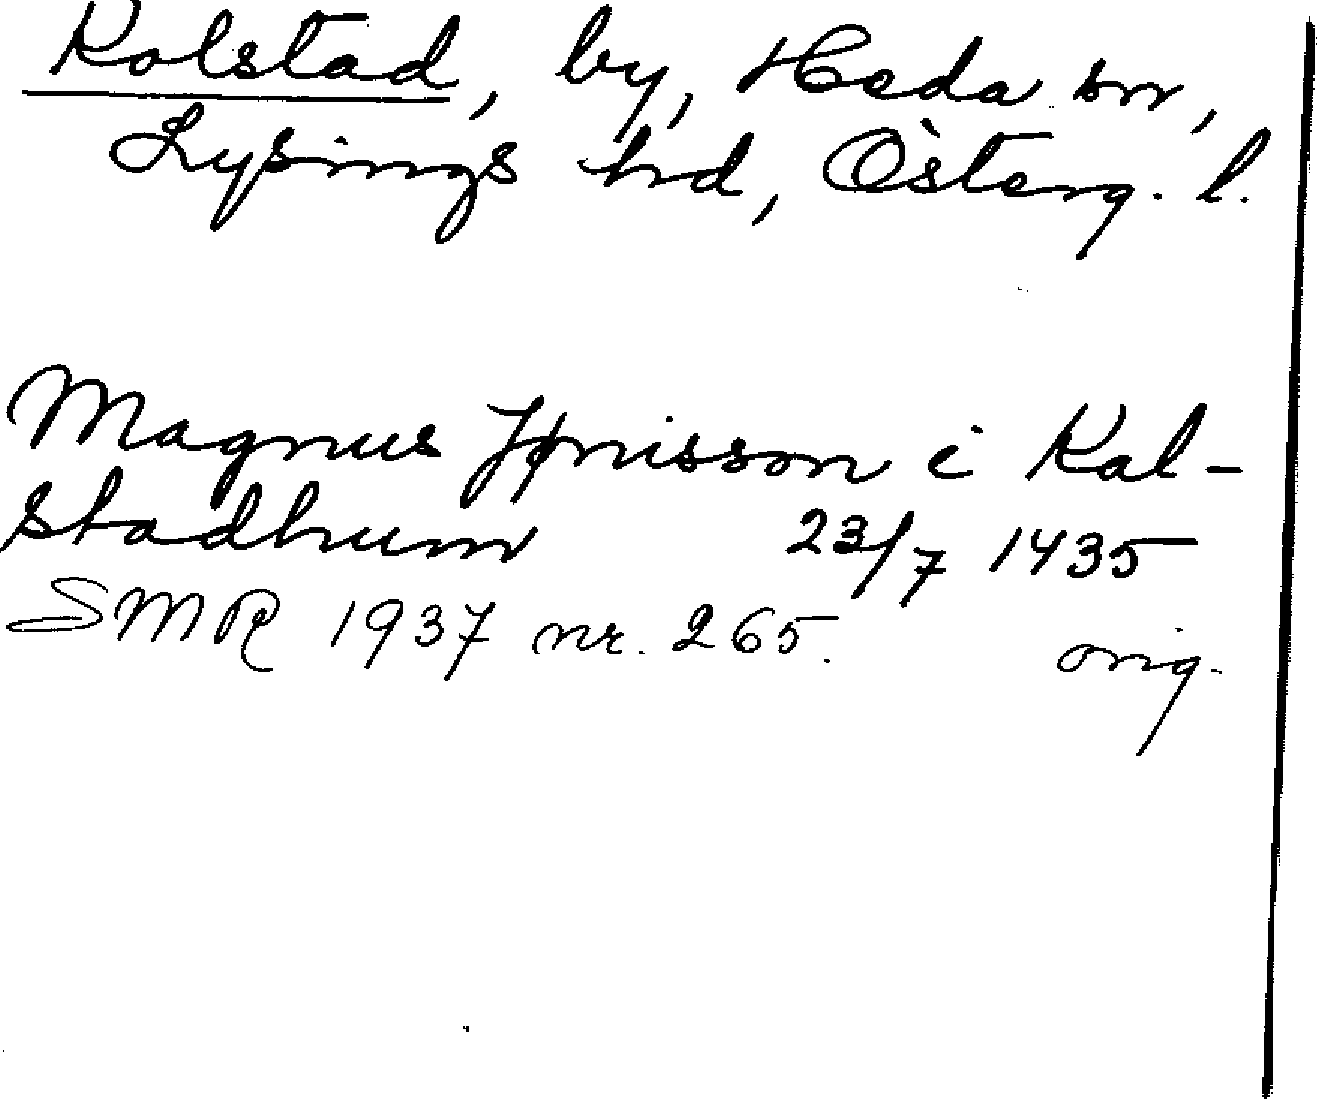 Rolstad, by, Heda sn,
Lysings hd, Österg. l.
Magnus Jønisson i Kal-
stadhum 23/7 1435
SMR 1937 nr. 265. orig.